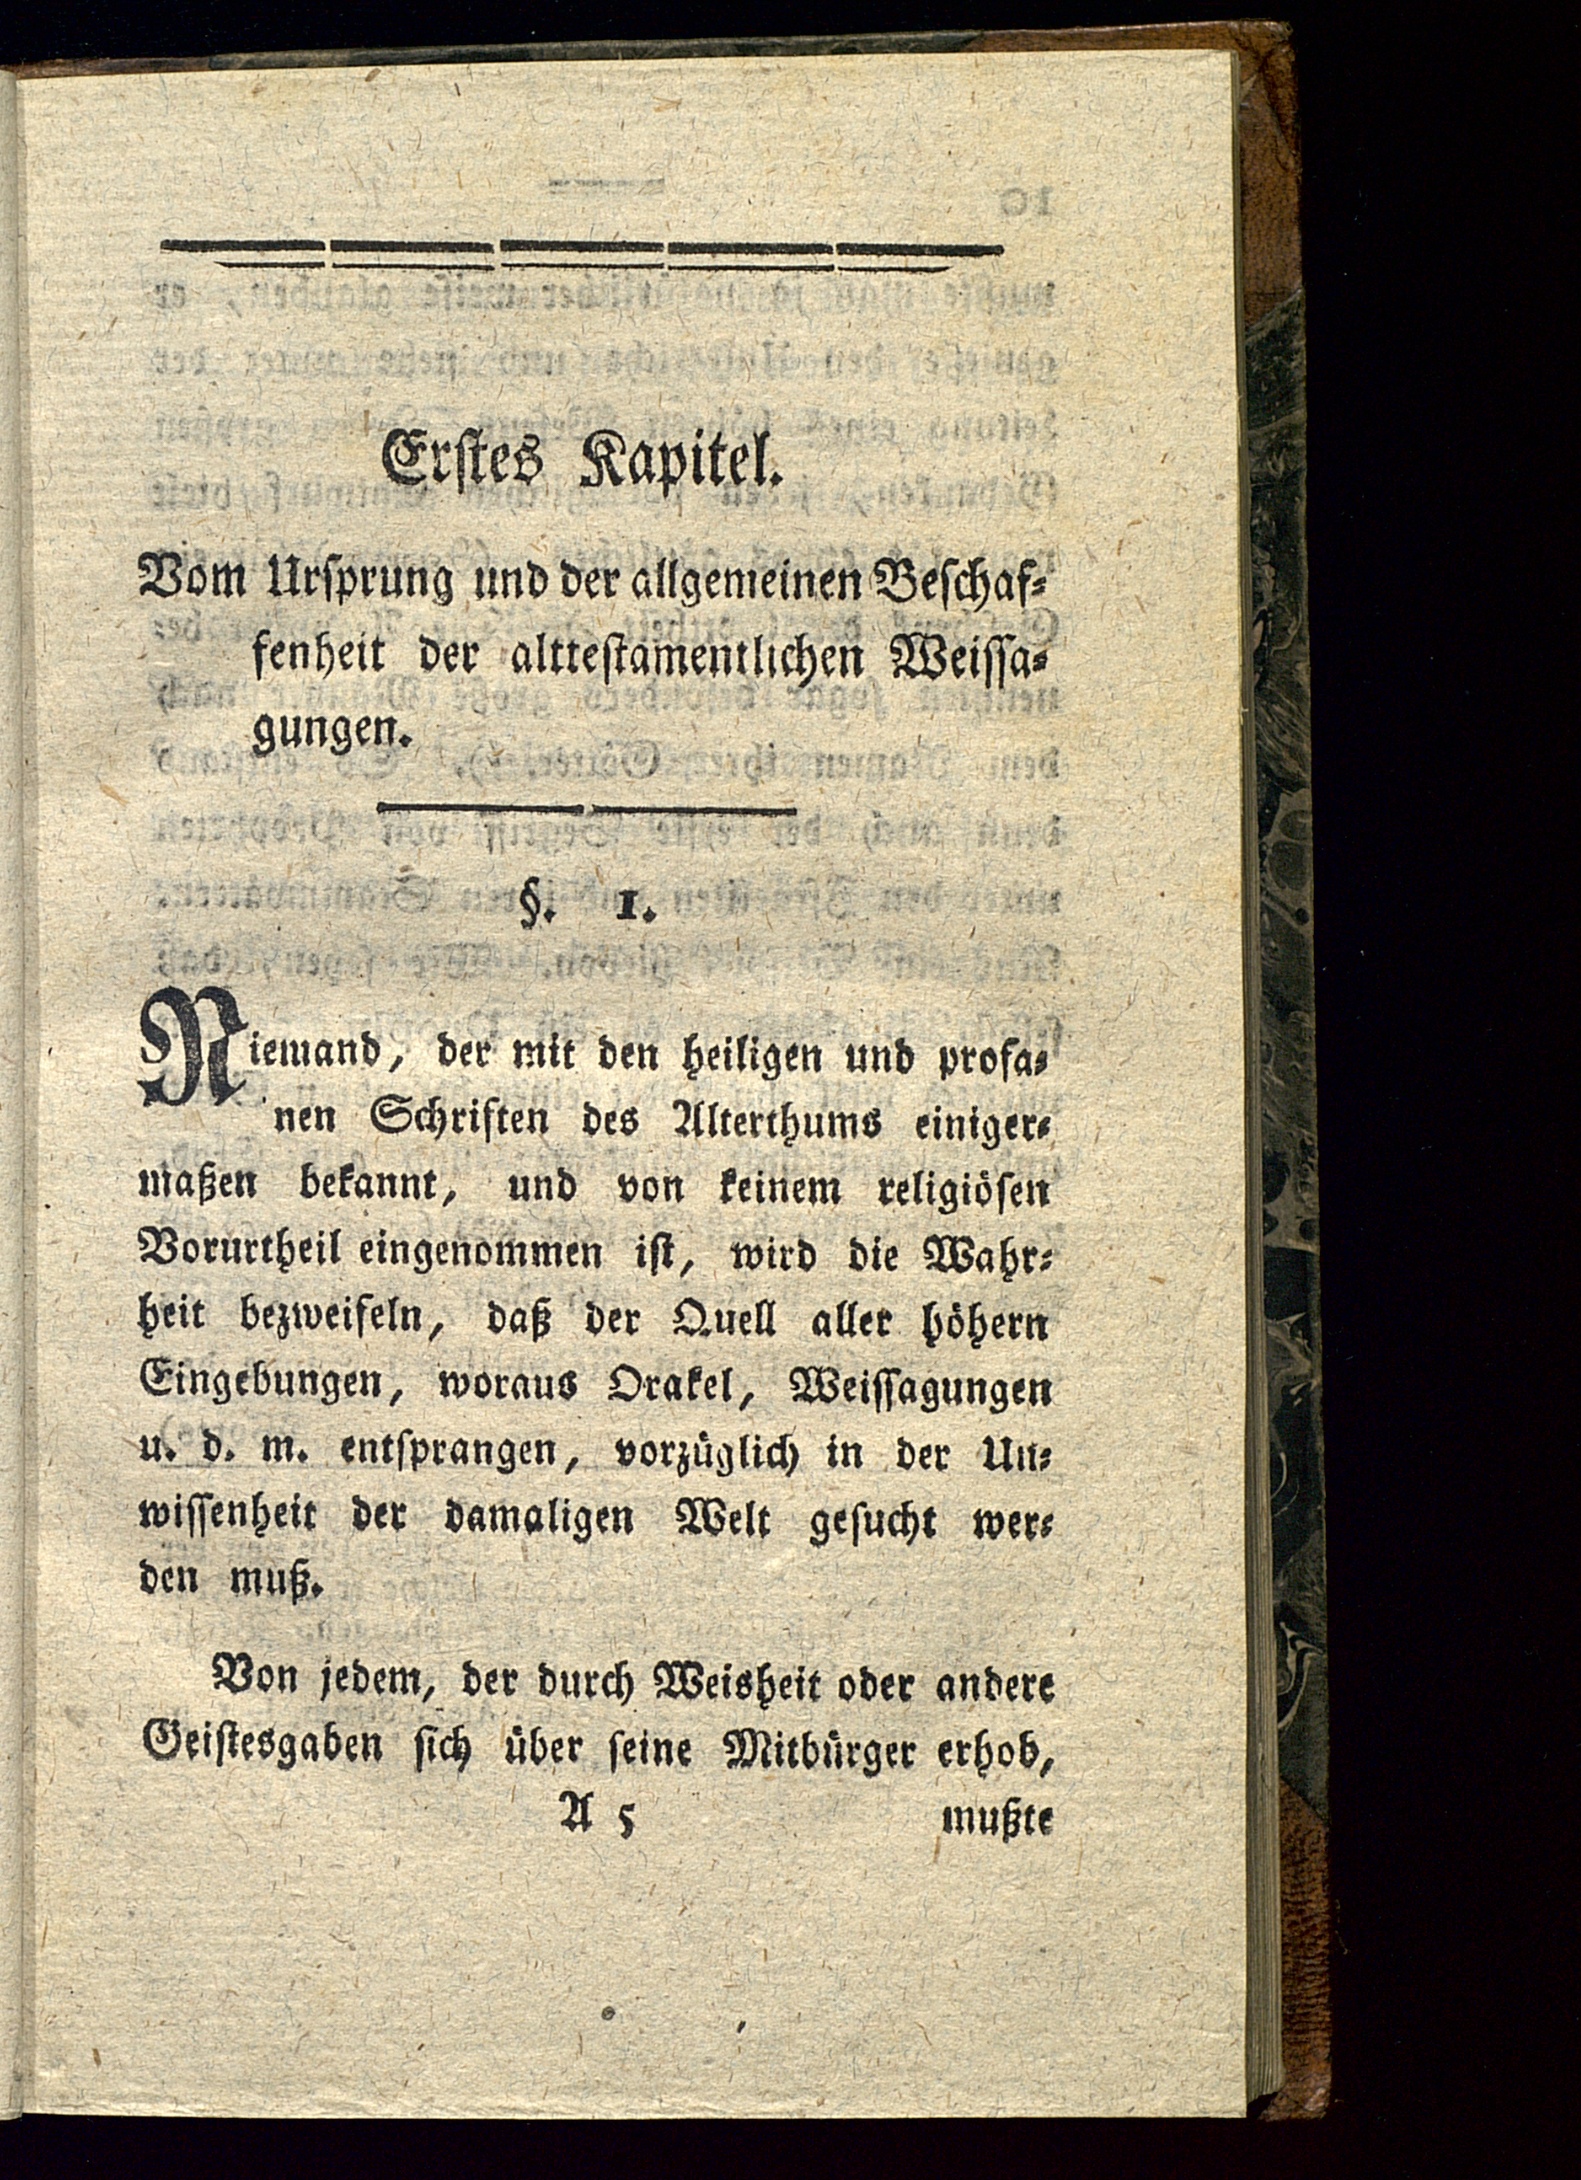 Erſtes Kapitel.
Vom Urſprung und der allgemeinen Beſchaf⸗
fenheit der altteſtamentlichen Weiſſa⸗
gungen.
§. 1.
Niemand, der mit den heiligen und profa⸗
nen Schriften des Alterthums einiger⸗
maßen bekannt, und von keinem religiöſen
Vorurtheil eingenommen iſt, wird die Wahr⸗
heit bezweifeln, daß der Quell aller höhern
Eingebungen, woraus Orakel, Weiſſagungen
u. d. m. entſprangen, vorzüglich in der Un⸗
wiſſenheit der damaligen Welt geſucht wer⸗
den muß.
Von jedem, der durch Weisheit oder andere
Geiſtesgaben ſich über ſeine Mitbürger erhob,
A 5 mußte